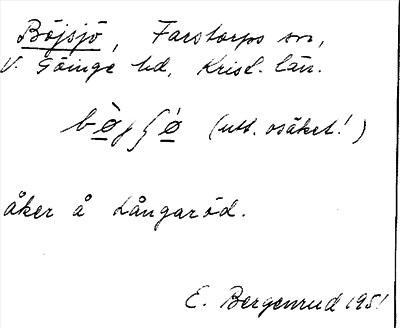 Böjsjö, Farstorps sn,
V. Göinge hd, Krist. län.
(utt. osäket!)
åker å Långaröd.
E. Bergenrud 1951